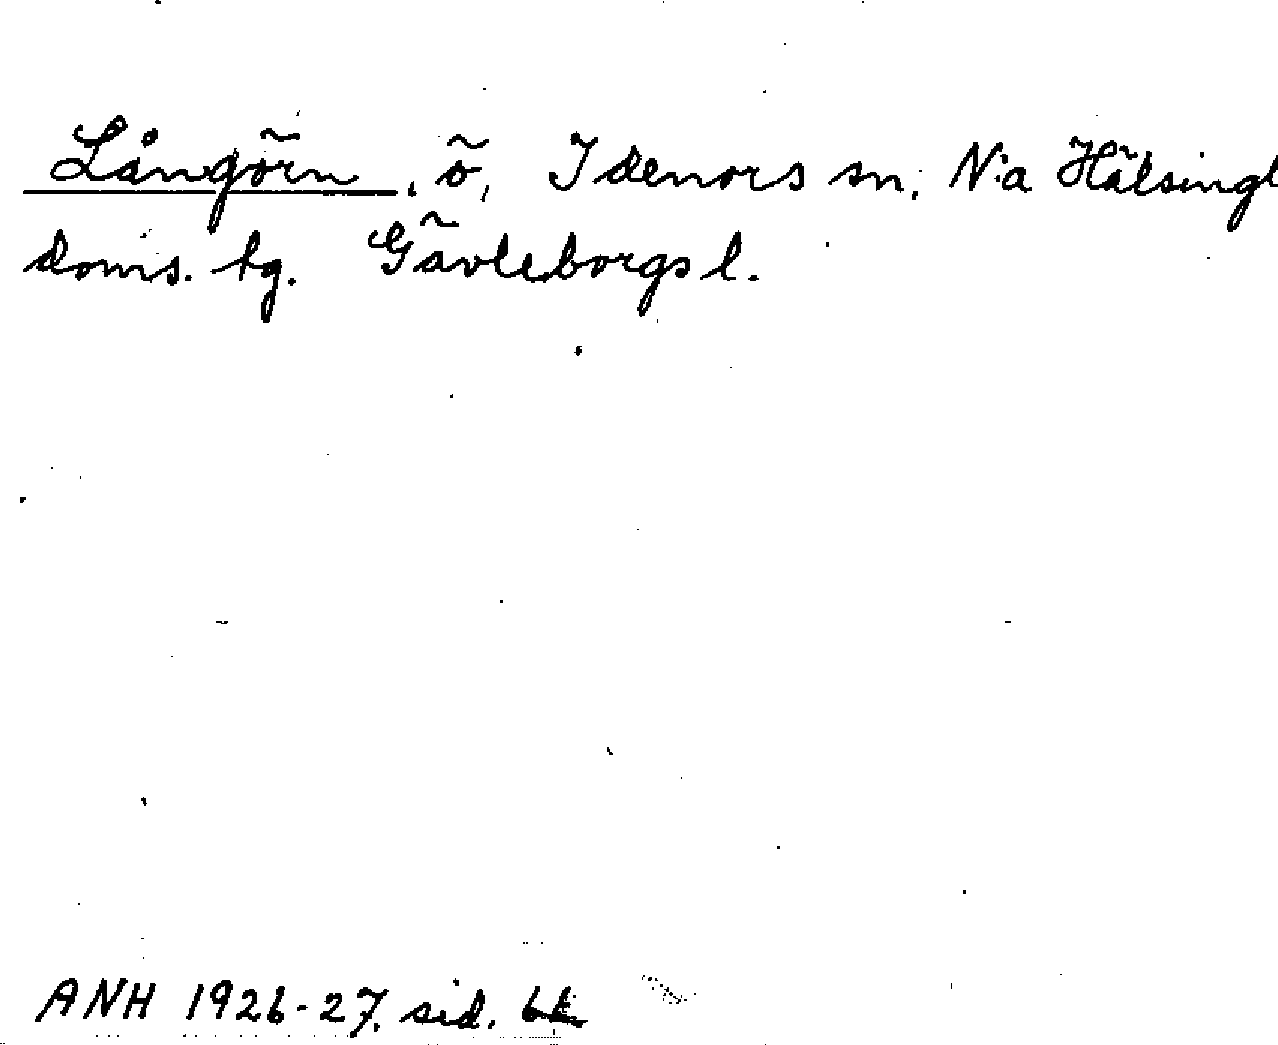 Långörn, ö, Idenors sn, N:a Hälsingl
doms. hg. Gävleborgs l.
ANH 1926-27, sid.